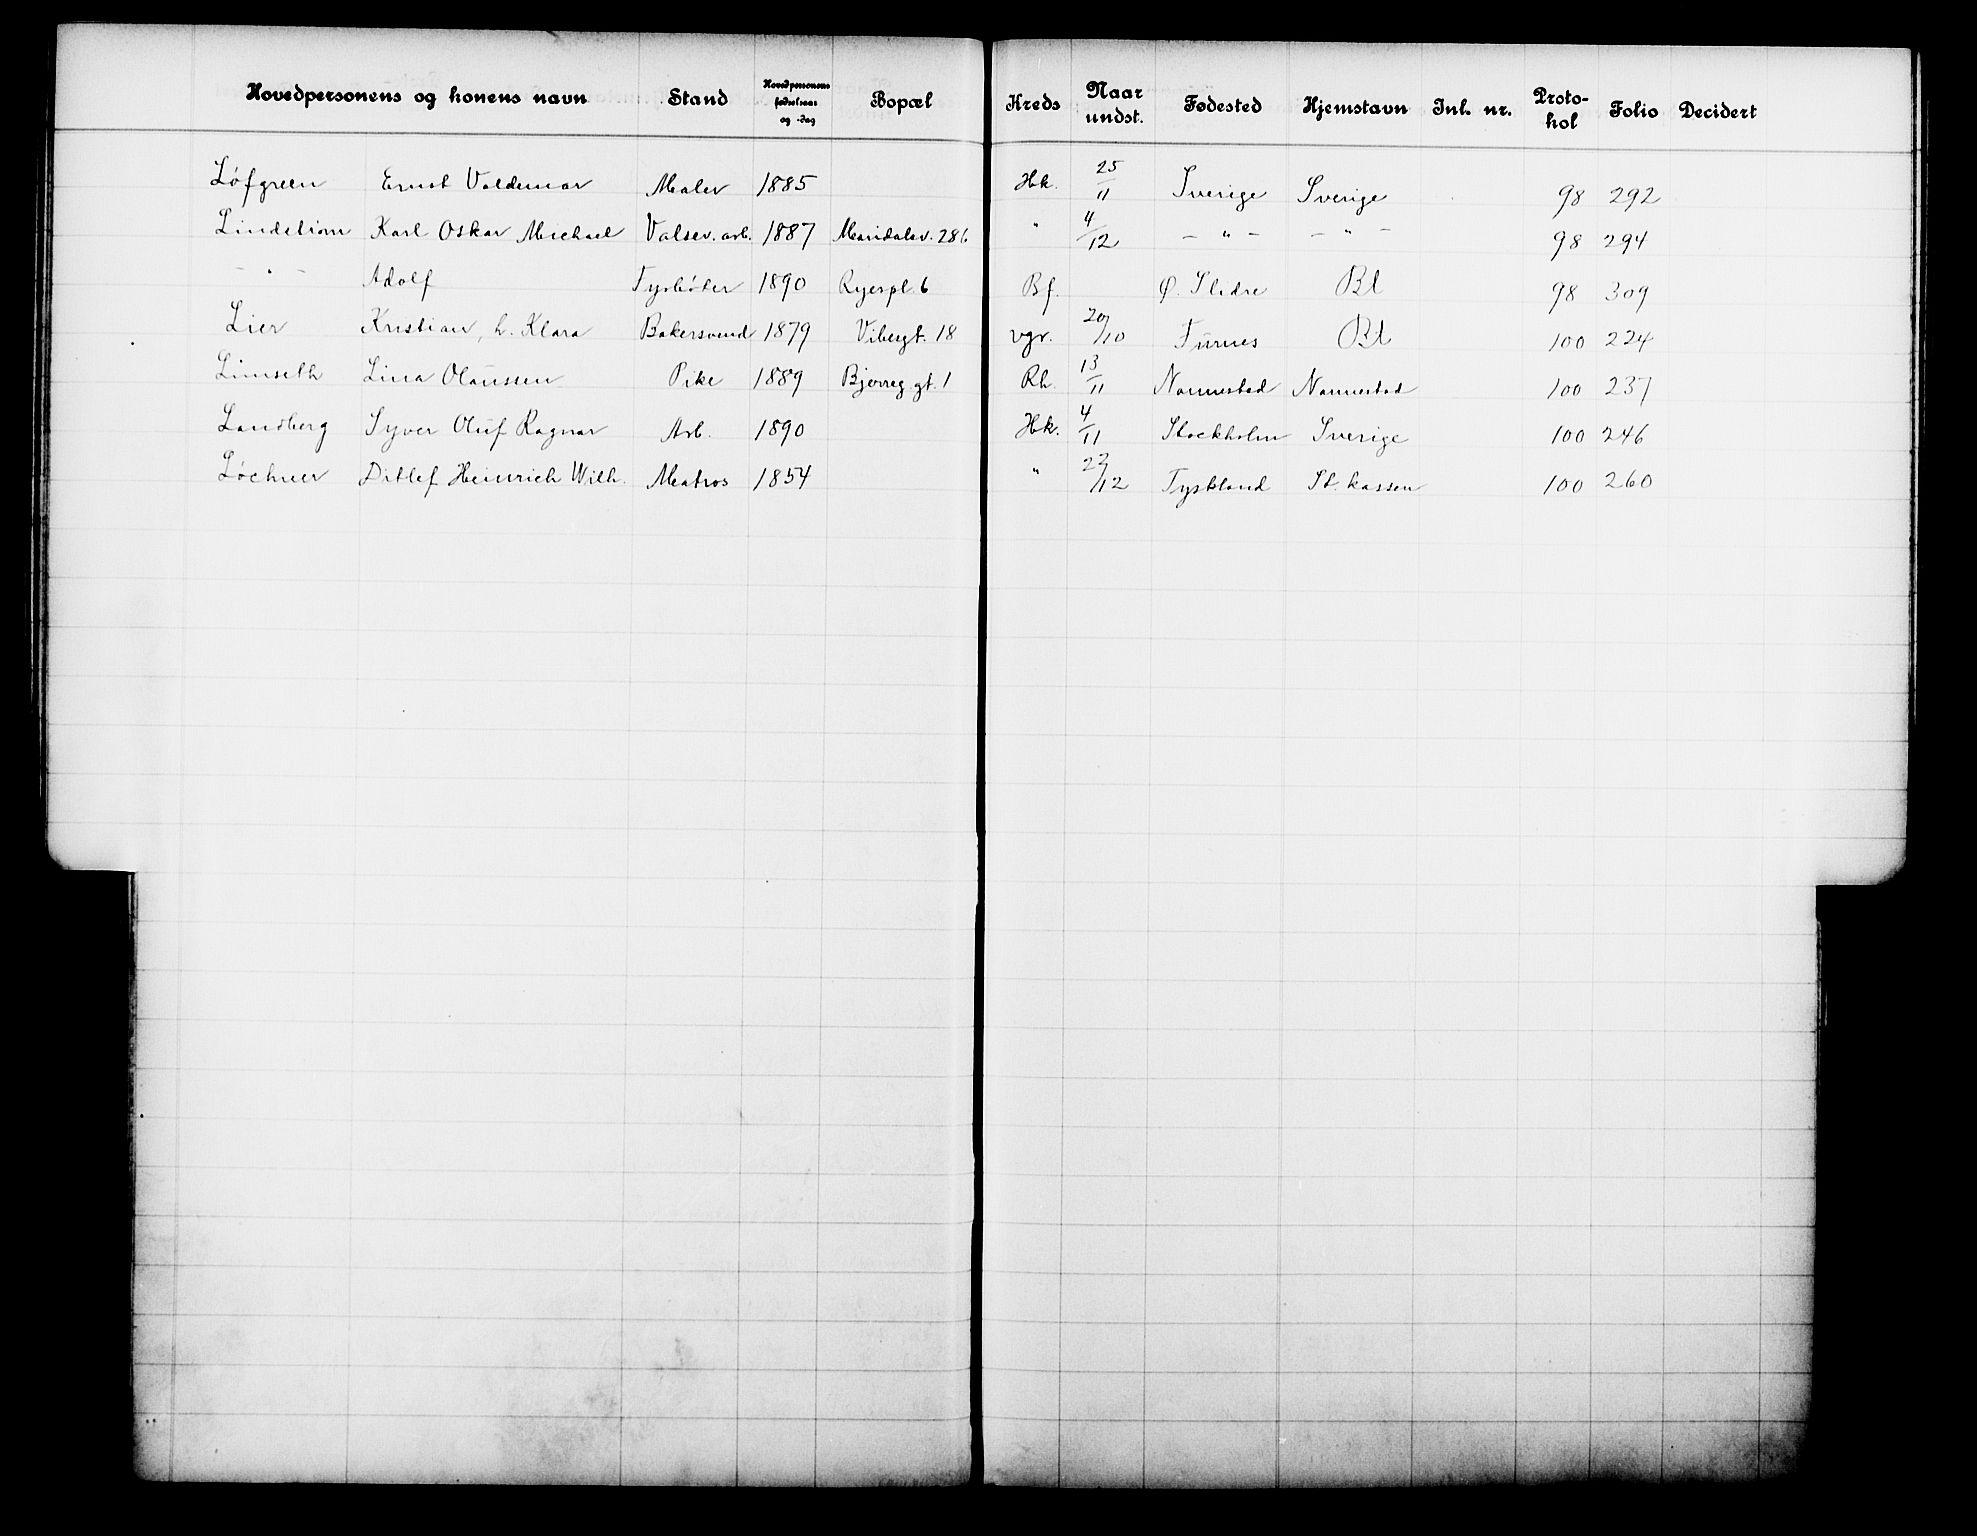 Hovedpersonens og konens navn Stand Hovedpersonens fødselsaar og -dag Bopæl Kreds Naar undst. Fødested Hjemstavn Inl. nr. Proto-kol Folio Decidert
Løfgreen Ernst Valdemar Maler 1885 Hk. 25/11 Sverige Sverige 98 292
Lindstrøm Karl Oskar Michael Valsev. arb. 1887 Maridalsv. 286 " 4/12 - " - - " - 98 294
- " - Adolf Fyrbøter 1890 Ryespl. 6 Bf. Ø. Slidre Bl 98 309
Lier Kristian, h. Klara Bakersvend 1879 Vibesgt. 18 vgr. 20/10 Furnes Bl 100 224
Limseth Lina Olaussen Pike 1889 Bjerreg.gt. 1 Rh. 13/11 Nannestad Nannestad 100 237
Landberg Syver Oluf Ragnar Arb. 1890 Hk. 4/11 Stockholm Sverige 100 246
Løchner Ditlef Heinrich Wilh. Matros 1854 " 22/12 Tyskland St. kassen 100 260